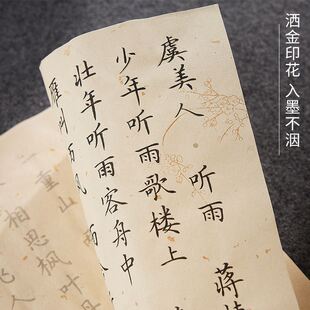 洒金印花 入墨不洇
虞美人 听雨 蒋
少年听雨歌楼上
壮年听雨客舟中
雁叫西风
重山
相思枫叶丹